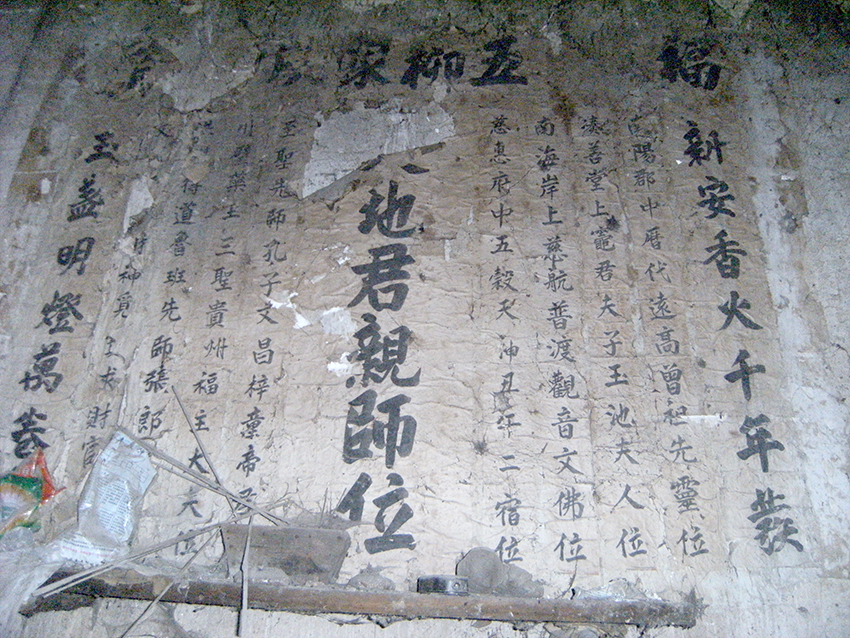 福 五柳家
新安香火千年發
陽郡中曆代遠高曾祖先靈位
善堂上竈君夫子玉池夫人位
南海岸上慈航普渡觀音文佛位
慈惠府中五穀天神丑年二宿位
地君親師位
至聖先師孔子文昌梓童帝
川 藥王三聖貴州福主大夫位
得道魯班先師張郎
神 財
玉盞明燈萬